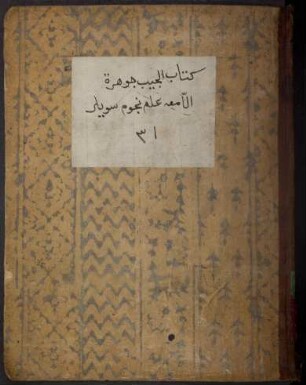 كتاب الجيب جوهرة
الآمعه علم نجوم سويلر
٣١